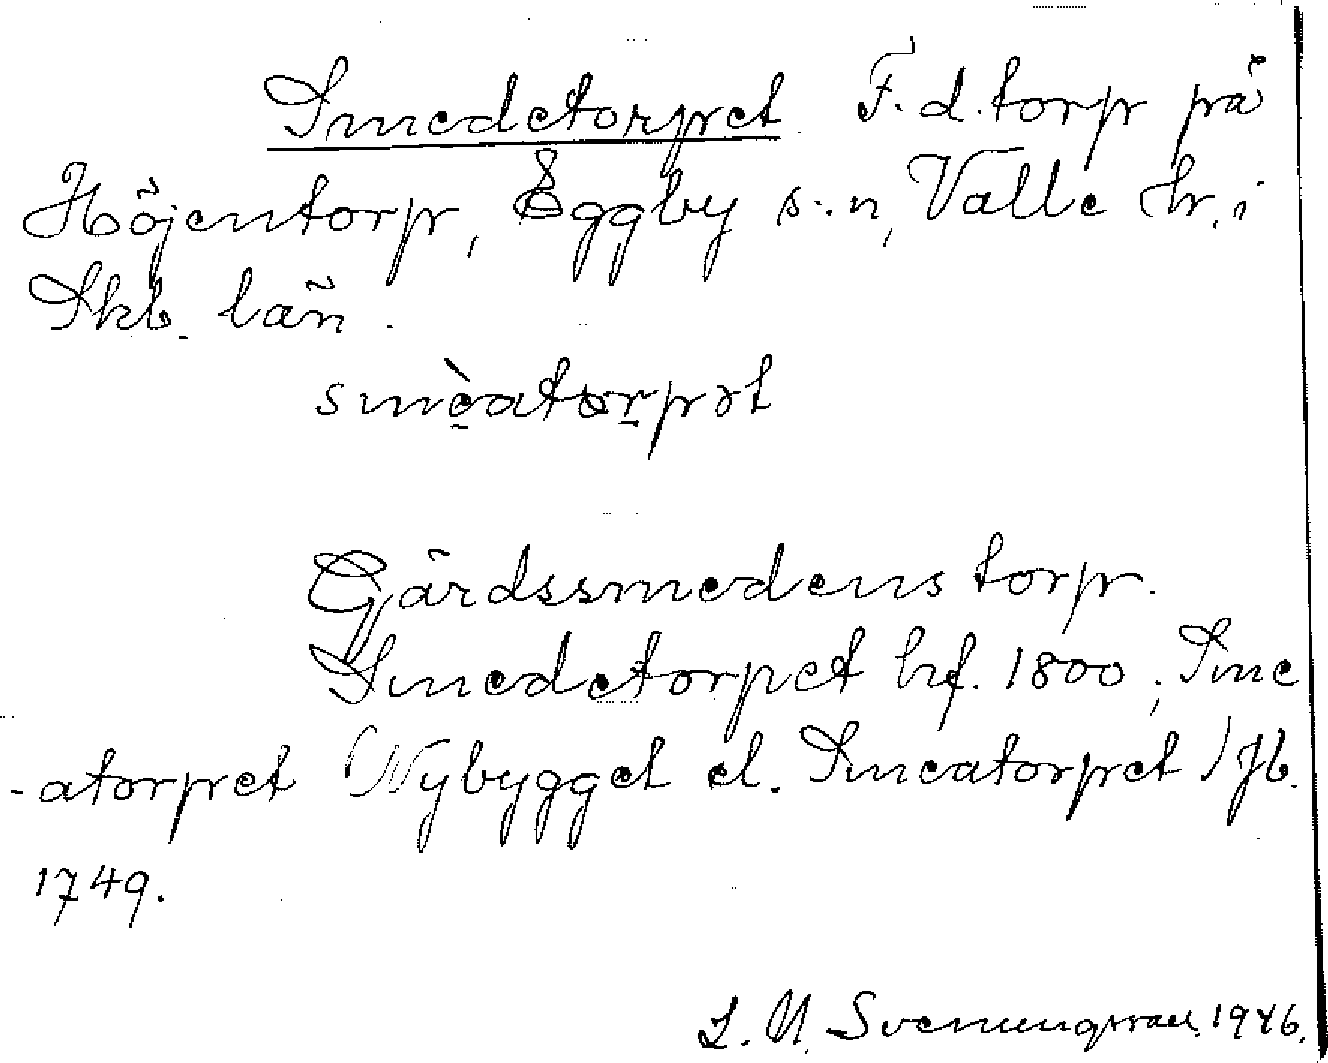 Smedetorpet F.d. torp på
Höjentorp, Eggby s:n, Valle hr. i
Skb. län.
smèatorpət
Gårdssmedens torp.
Smedetorpet hf. 1800; Sme
-atorpet Nybygget el. Smeatorpet Jb.
1749.
Svenungsson 1946.